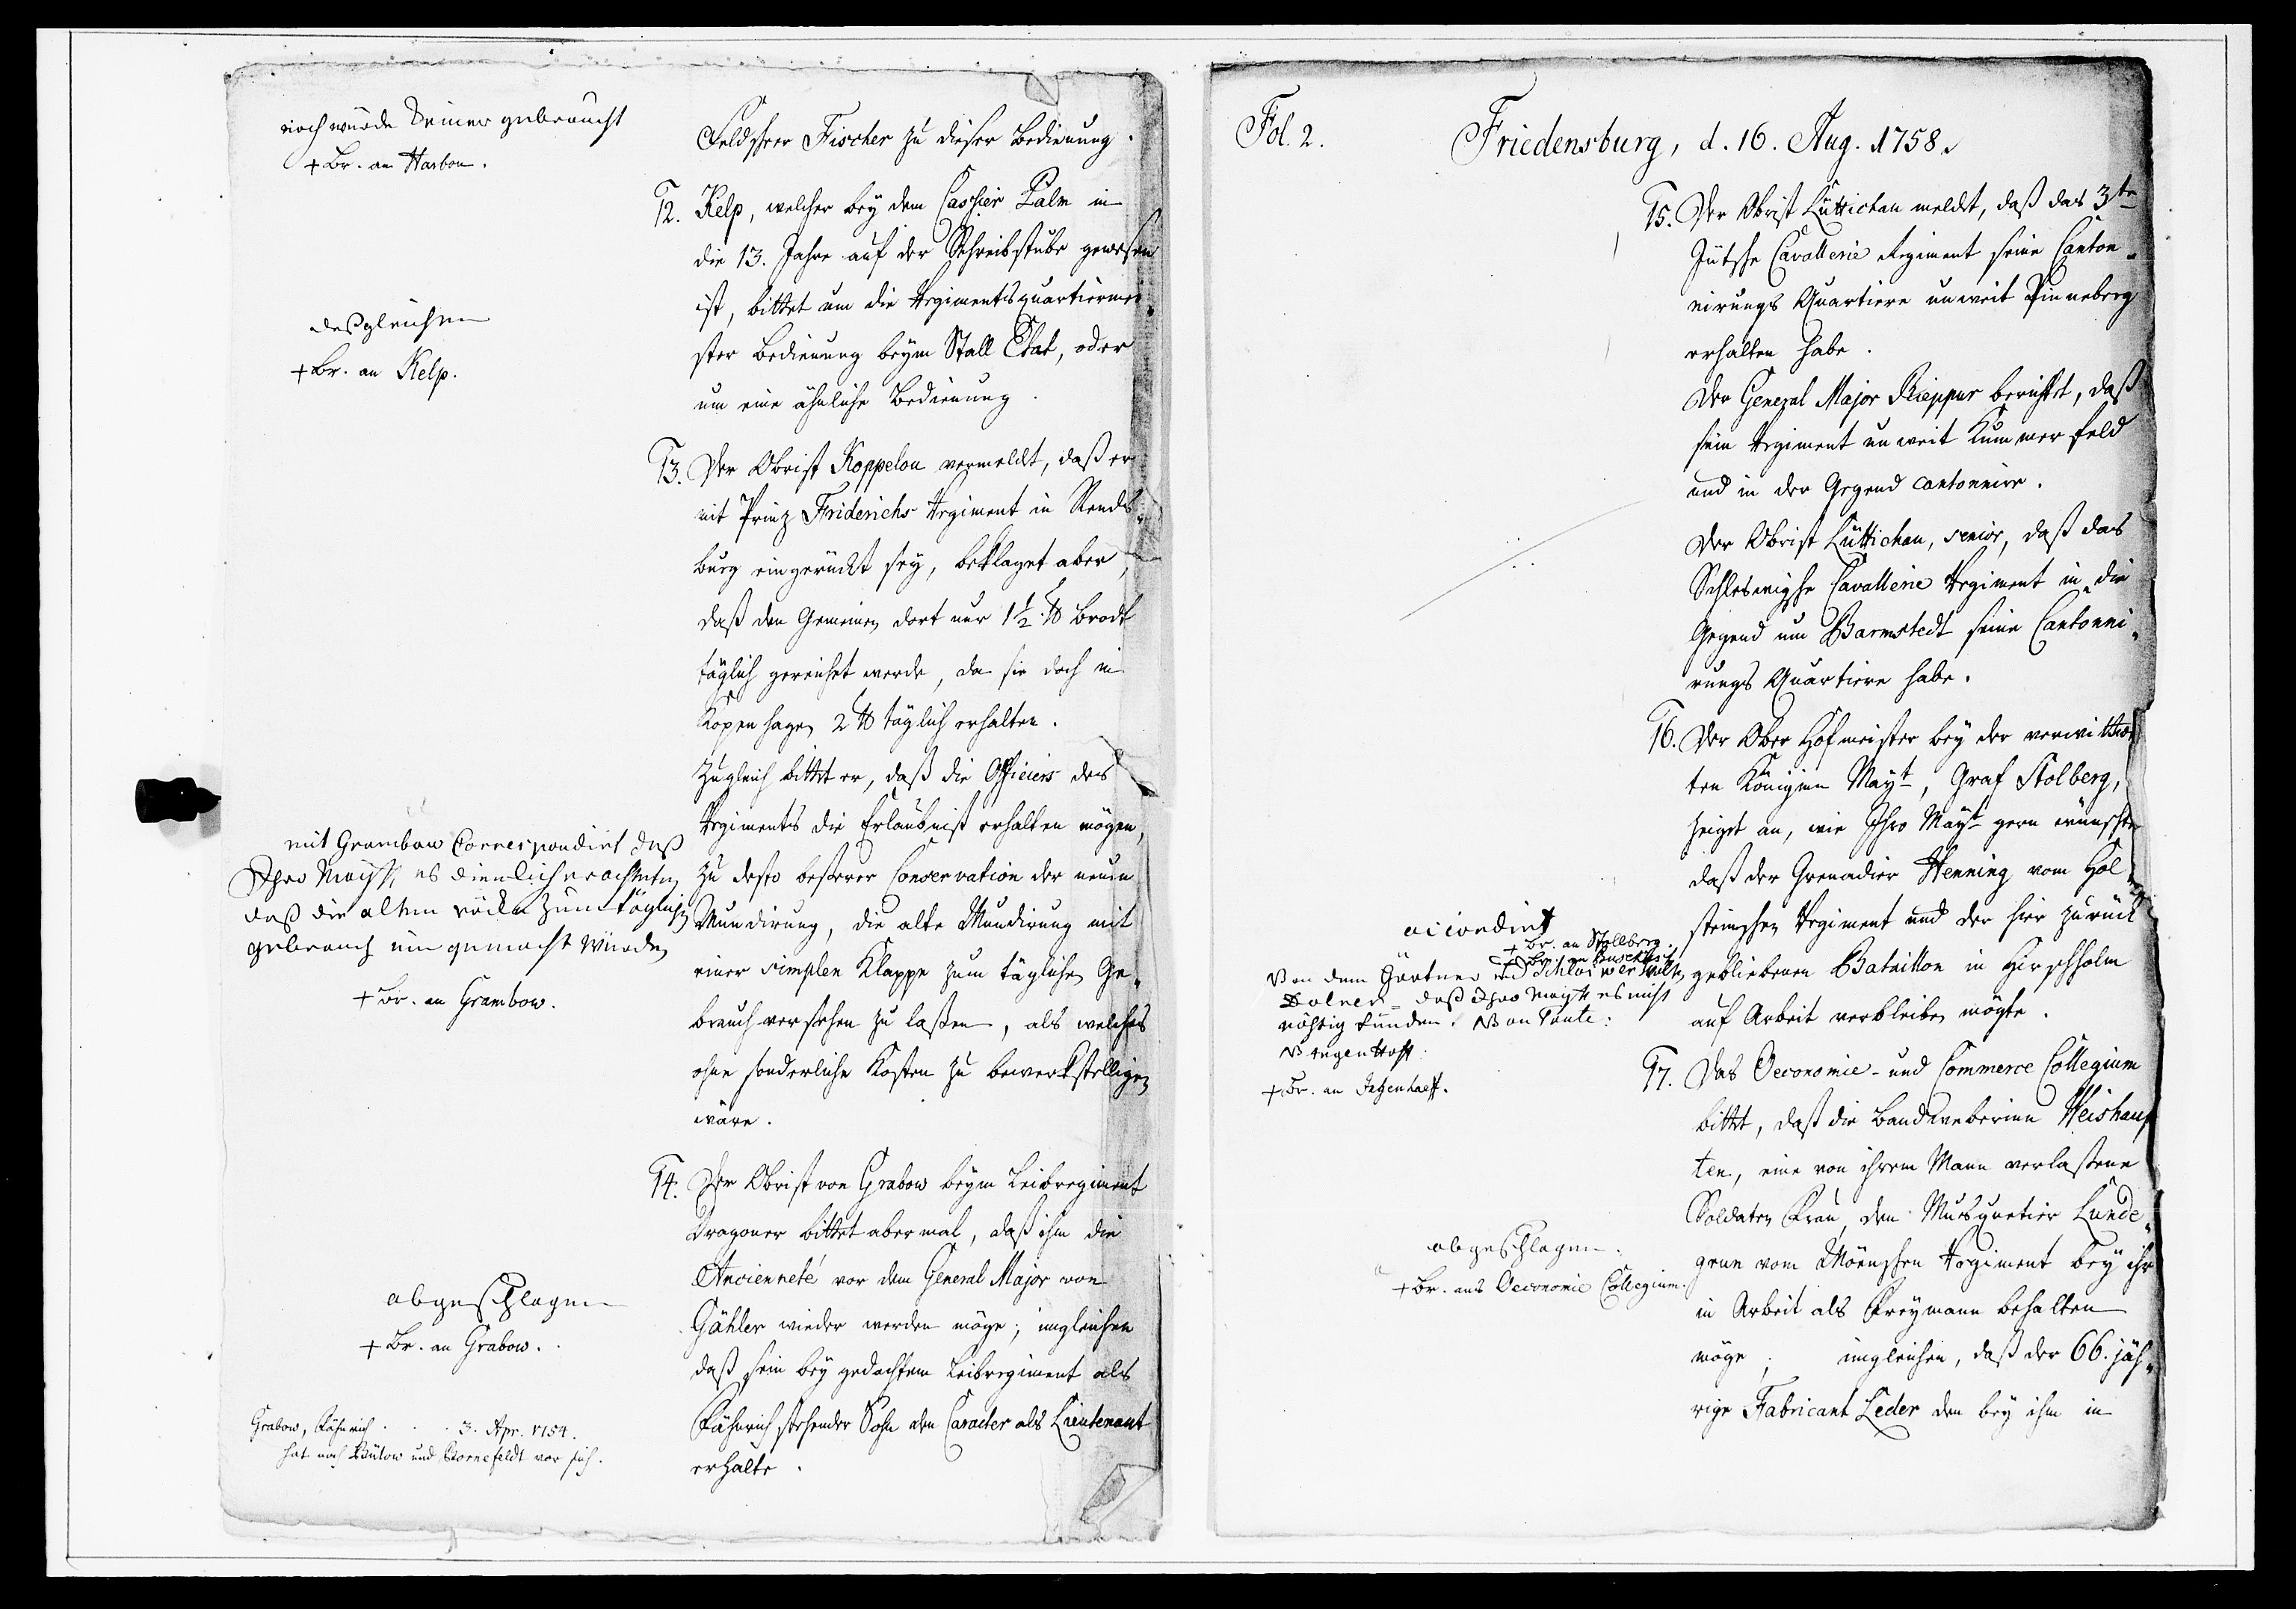 noch wurde keiner gebraucht
+ Br. an Harbou.
Feldscher Fischer zu dieser Bedienung.
12. Kelp, welcher bey dem Cassier Palm in
die 13. Jahre auf der Schreibstube gewesen
ist, bittet um die Regimentsquartiermei-
ster Bedienung beym Stall Etat, oder
um eine ähnliche Bedienung.
deßgleichen
+ Br. an Kelp.
13. Der Obrist Koppelou vermeldt, daß er
mit Prinz Friderichs Regiment in Rends-
burg eingerückt sey, beklaget aber,
daß den Gemeinen dort nur 1½ ℔ Brodt
täglich gereichet werde, da sie doch in
Kopenhagen 2 ℔ täglich erhalten.
Zugleich bittet er, daß die Officiers des
Regiments die Erlaubniß erhalten mögen,
zu desto besserer Conservation der neuen
Mundirung, die alte Mundirung mit
einer simplen Klappe zum täglichen Ge-
brauch versehen zu laßen, als welches
ohne sonderliche Kosten zu bewerkstelligen
wäre.
mit Grambow Correspondirt daß
Ihro Mayt. es dienlich erachteten
daß die alten röcke zum täglichen
gebrauch um gemacht würden
+ Br. an Grambow.
14. Der Obrist von Grabow beym Leibregiment
Dragoner bittet abermal, daß ihm die
Ancienneté vor dem General Major von
Gähler wieder werden möge; imgleichen
daß sein bey gedachtem Leibregiment als
Fähnrich stehender Sohn den Caracter als Lieutenant
erhalte.
abgeschlagen
+ Br. an Grabow.
Grabow, Fähnrich . . . 3. Apr. 1754.
hat noch Bülow und Bornefeldt vor sich.
Fol. 2.
Friedensburg, d. 16. Aug. 1758.
15. Der Obrist Lüttichau meldt, daß das 3te
Jütsche Cavallerie Regiment seine Canton-
nirungs Quartiere unweit Pinneberg
erhalten habe.
Der General Major Rieppur berichtet, daß
sein Regiment unweit Kummerfeld
und in der Gegend cantonnire.
Der Obrist Lüttichau, senior, daß das
Schleswigsche Cavallerie Regiment in die
Gegend um Barmstedt seine Cantonni-
rungs Quartiere habe.
16. Der Ober Hofmeister bey der verwittwe-
ten Königinn Mayt, Graf Stolberg,
zeiget an, wie Ihro Mayt gern wünschte
daß der Grenadier Henning vom Hol-
steinschen Regiment und der hier zurück
gebliebenen Bataillon in Hirschholm
auf Arbeit verbleiben mögte.
accordirt
+ Br. an Stollberg.
Von dem Gärtner und
daß Ihro Mayt es nicht
nöhtig funden.
+ Br. an Jagenhoff.
17. Das Oeconomie- und Commerce Collegium
bittet, daß die Bandweberinn Weishaup-
ten, eine von ihrem Mann verlaßene
Soldaten Frau, den Musquetier Lunde-
grun vom Möenschen Regiment bey ihr
in Arbeit als Freymann behalten
möge; imgleichen, daß der 66. jäh-
rige Fabricant Leder den bey ihm in
abgeschlagen.
+ Br. ans Oeconomie Collegium.